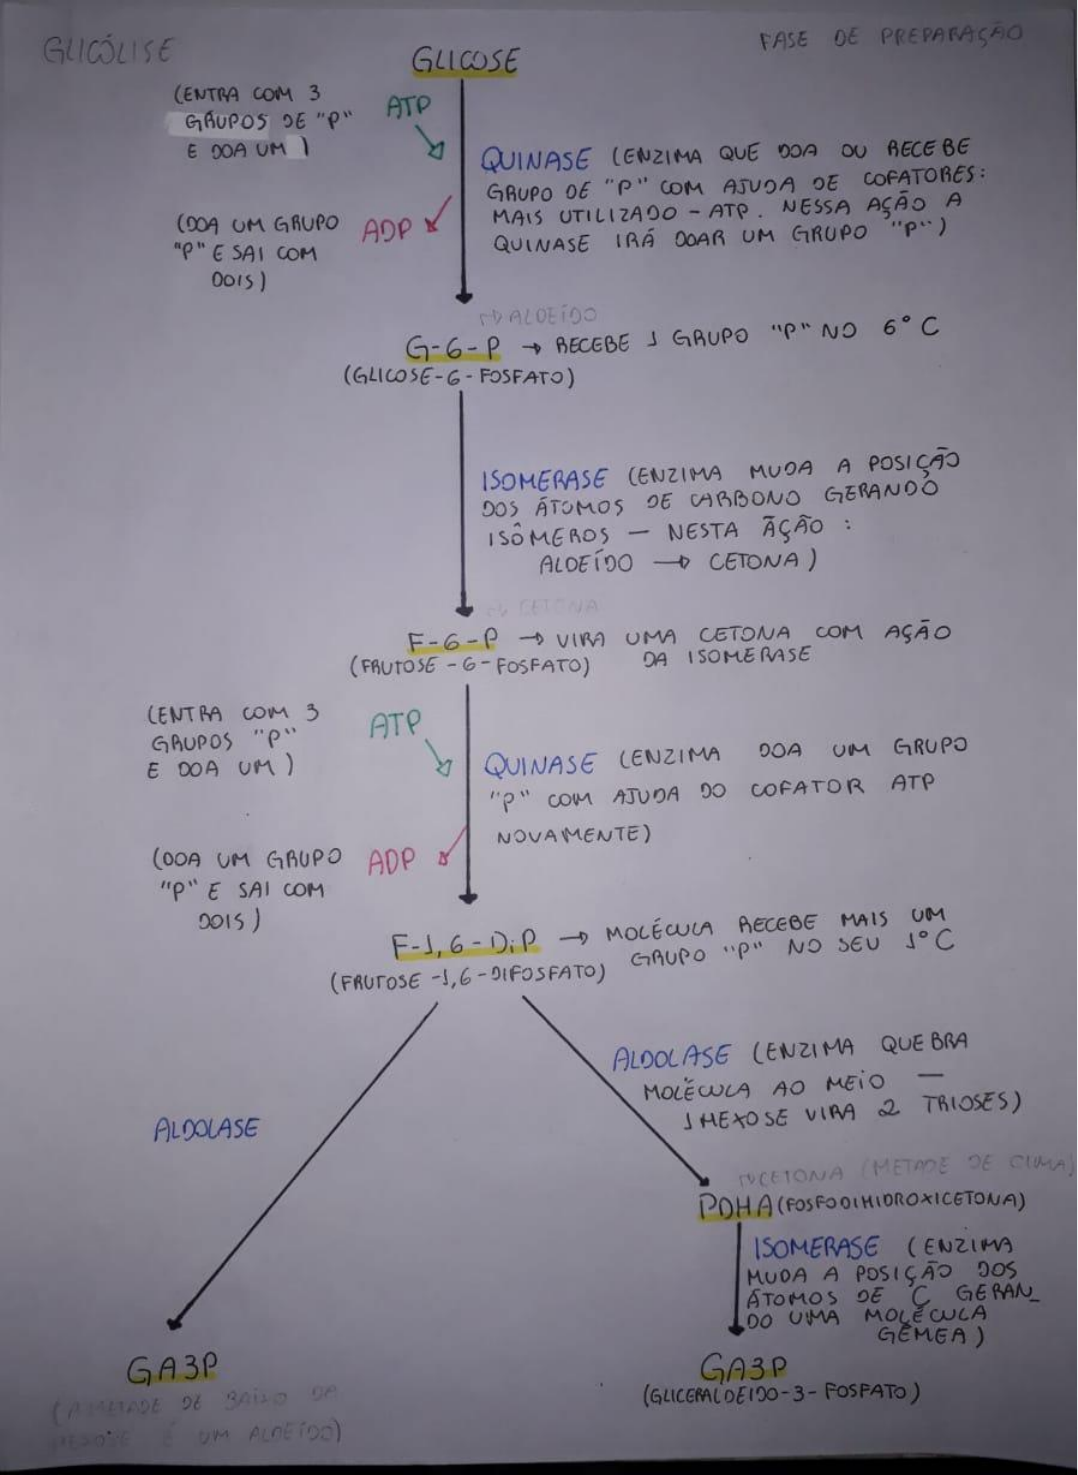 GLICÓLISE
FASE DE PREPARAÇÃO
GLICOSE
(ENTRA COM 3
GRUPOS DE "P"
E DOA UM)
ATP
QUINASE (ENZIMA QUE DOA OU RECEBE
GRUPO DE "P" COM AJUDA DE COFATORES:
MAIS UTILIZADO - ATP. NESSA AÇÃO A
QUINASE IRÁ DOAR UM GRUPO "P")
(DOA UM GRUPO
"P" E SAI COM
DOIS)
ADP
↳ ALDEÍDO
G-6-P → RECEBE 1 GRUPO "P" NO 6° C
(GLICOSE-6-FOSFATO)
ISOMERASE (ENZIMA MUDA A POSIÇÃO
DOS ÁTOMOS DE CARBONO GERANDO
ISÔMEROS — NESTA AÇÃO :
ALDEÍDO → CETONA)
↳ CETONA
F-6-P → VIRA UMA CETONA COM AÇÃO
DA ISOMERASE
(FRUTOSE-6-FOSFATO)
(ENTRA COM 3
GRUPOS "P"
E DOA UM)
ATP
QUINASE (ENZIMA DOA UM GRUPO
"P" COM AJUDA DO COFATOR ATP
NOVAMENTE)
(DOA UM GRUPO
"P" E SAI COM
DOIS)
ADP
F-1,6-DiP → MOLÉCULA RECEBE MAIS UM
GRUPO "P" NO SEU 1° C
(FRUTOSE-1,6-DIFOSFATO)
ALDOLASE (ENZIMA QUEBRA
MOLÉCULA AO MEIO —
1 HEXOSE VIRA 2 TRIOSES)
ALDOLASE
↳ CETONA (METADE DE CIMA)
PDHA (FOSFODIHIDROXICETONA)
ISOMERASE (ENZIMA
MUDA A POSIÇÃO DOS
ÁTOMOS DE C GERAN_
DO UMA MOLÉCULA
GÊMEA)
GA3P
(A METADE DE BAIXO DA
HEXOSE É UM ALDEÍDO)
GA3P
(GLICERALDEIDO-3-FOSFATO)